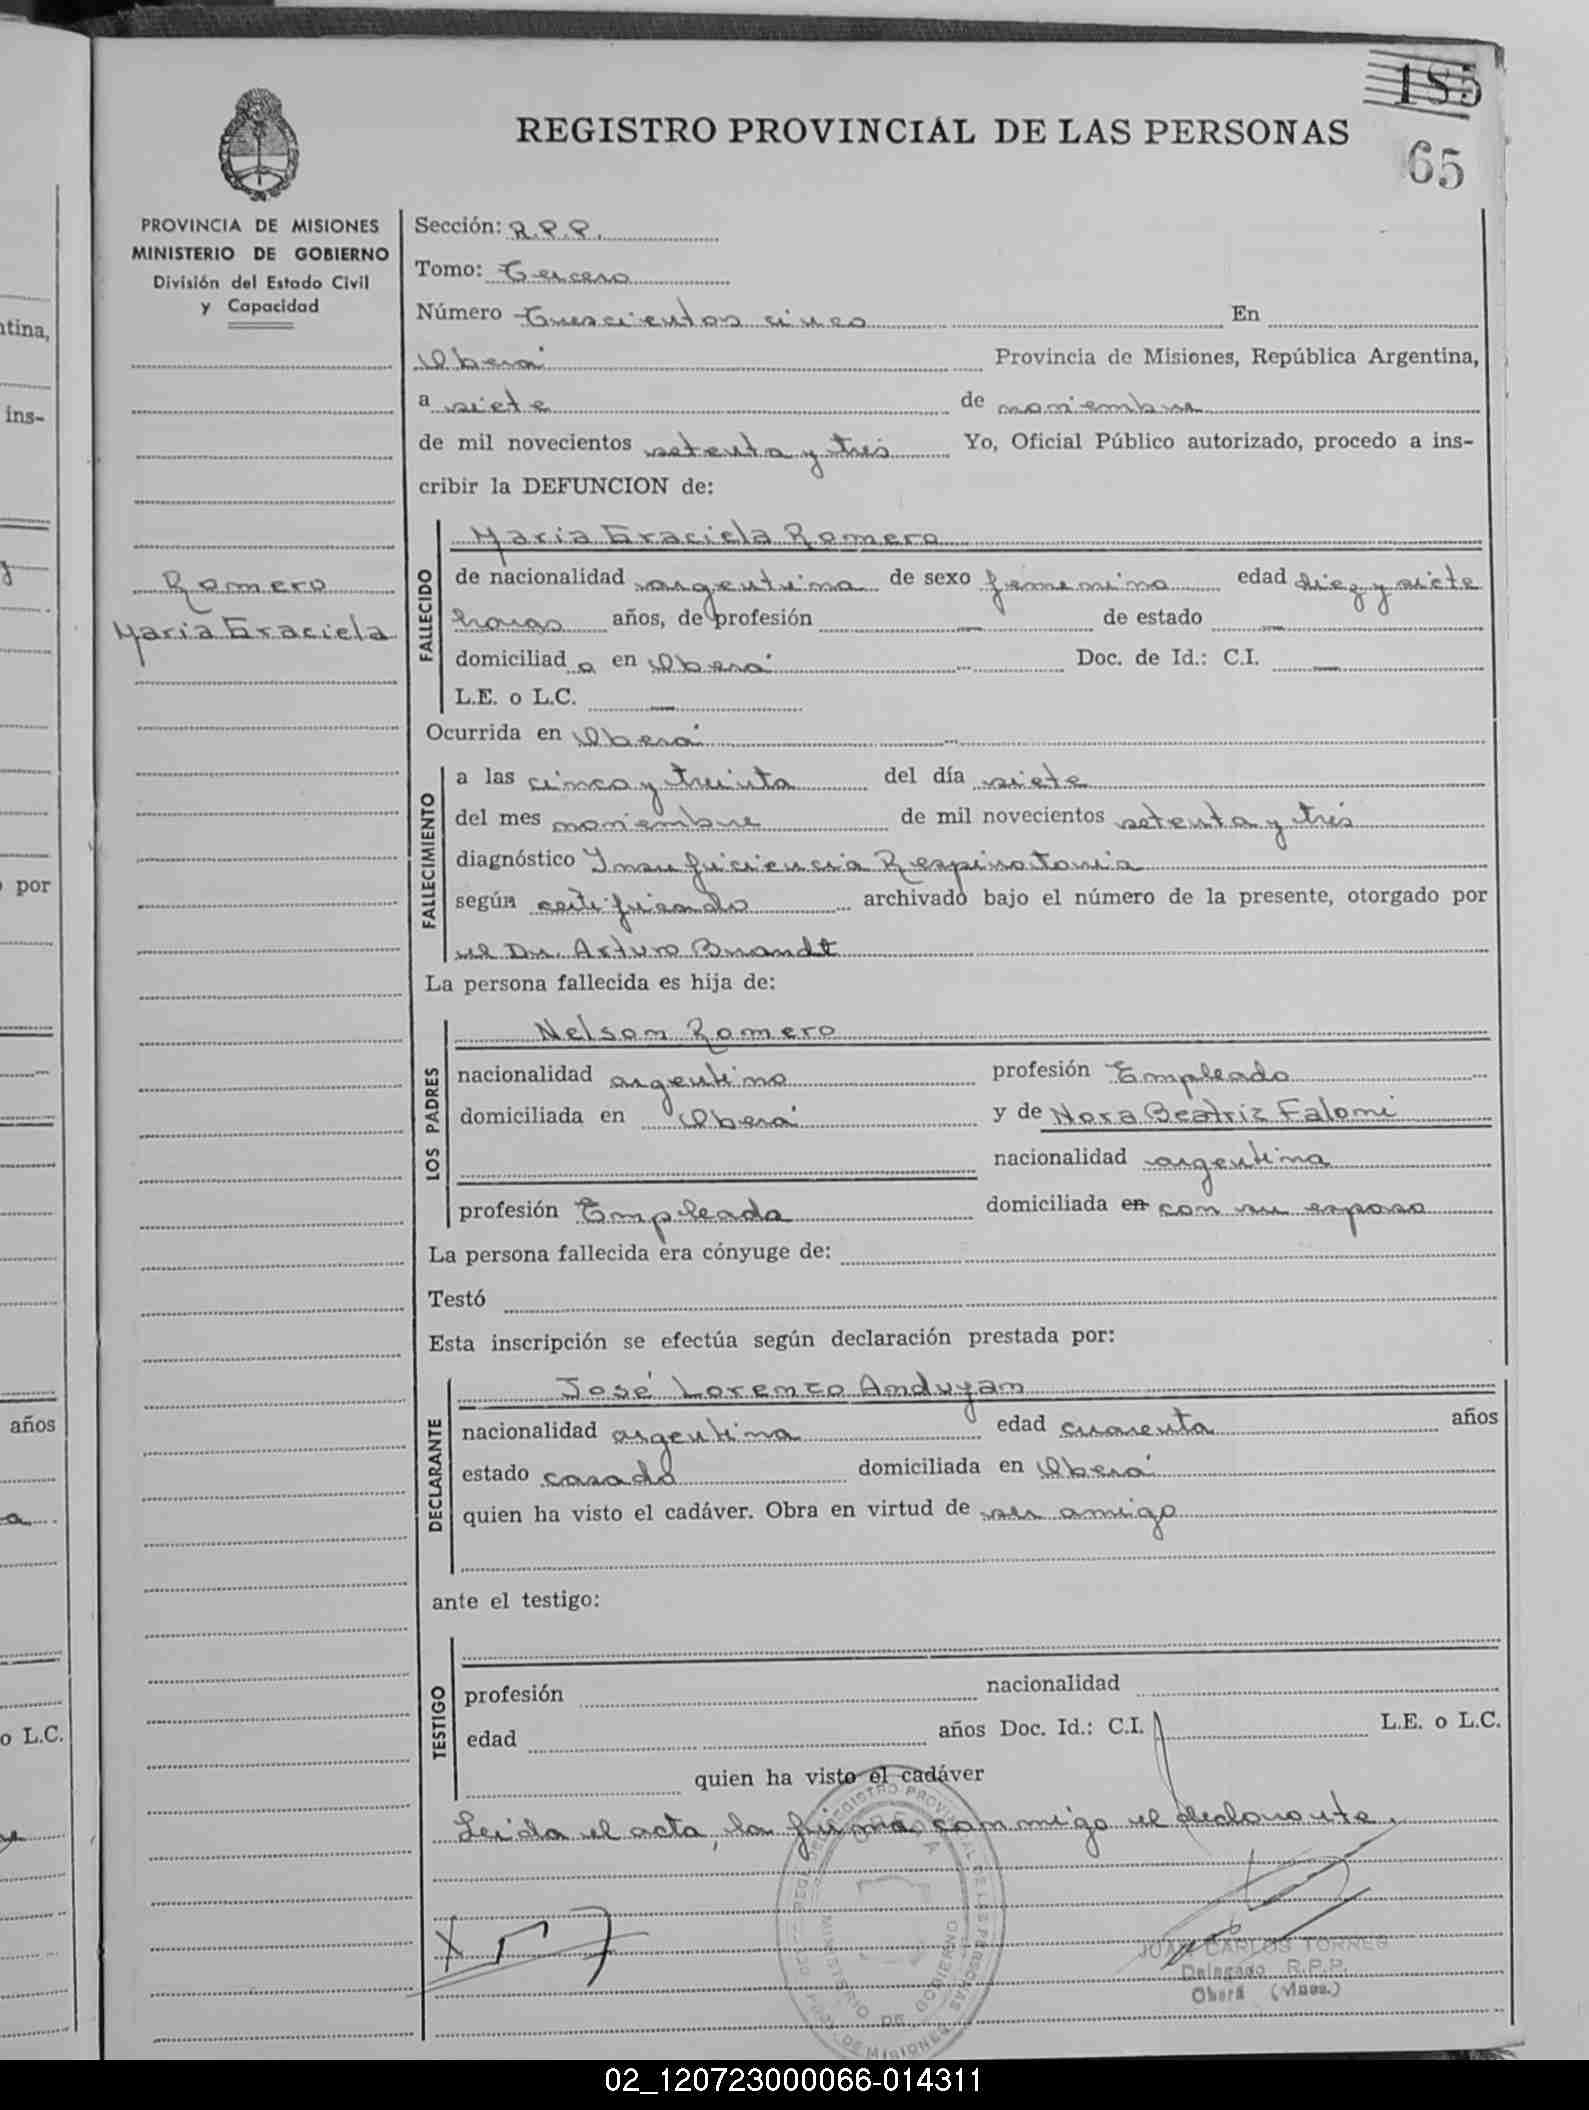 185
REGISTRO PROVINCIAL DE LAS PERSONAS
65
PROVINCIA DE MISIONES
MINISTERIO DE GOBIERNO
División del Estado Civil
y Capacidad
Romero
Maria Graciela
Sección: R.P.P.
Tomo: Tercero
Número Trescientos cinco En
Oberá Provincia de Misiones, República Argentina,
a siete de noviembre
de mil novecientos setenta y tres Yo, Oficial Público autorizado, procedo a ins-
cribir la DEFUNCION de:
FALLECIDO
Maria Graciela Romero
de nacionalidad argentina de sexo femenino edad diez y siete
horas años, de profesión — de estado —
domiciliad a en Oberá Doc. de Id.: C.I. —
L.E. o L.C. —
Ocurrida en Oberá
FALLECIMIENTO
a las cinco y treinta del día siete
del mes noviembre de mil novecientos setenta y tres
diagnóstico Insuficiencia Respiratoria
según certificado archivado bajo el número de la presente, otorgado por
el Dr. Arturo Brandt
La persona fallecida es hija de:
LOS PADRES
Nelson Romero
nacionalidad argentino profesión Empleado
domiciliada en Oberá y de Nora Beatriz Falomi
nacionalidad argentina
profesión Empleada domiciliada en con su esposo
La persona fallecida era cónyuge de:
Testó
Esta inscripción se efectúa según declaración prestada por:
DECLARANTE
José Lorenzo Andujan
nacionalidad argentina edad cuarenta años
estado casado domiciliada en Oberá
quien ha visto el cadáver. Obra en virtud de ser amigo
ante el testigo:
TESTIGO
profesión nacionalidad
edad años Doc. Id.: C.I. L.E. o L.C.
quien ha visto el cadáver
Leida el acta, la firma conmigo el declarante.
JUAN CARLOS TORRES
Delegado R.P.P.
Oberá (Mnes.)
MINISTERIO DE GOBIERNO
02_120723000066-014311
tina,
ins-
por
años
o L.C.